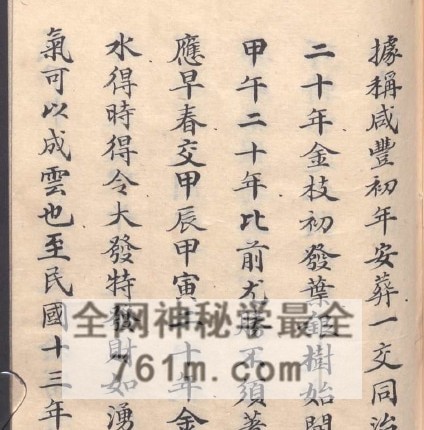 據稱咸豐初年安葬一交同治
二十年金枝初發葉銀樹始開
甲午二十年比前尤勝不須蓍
應早春交甲辰甲寅二十年金
水得時得令大發特發財如湧
氣可以成雲也至民國十三年
全网神秘学最全
761m.com